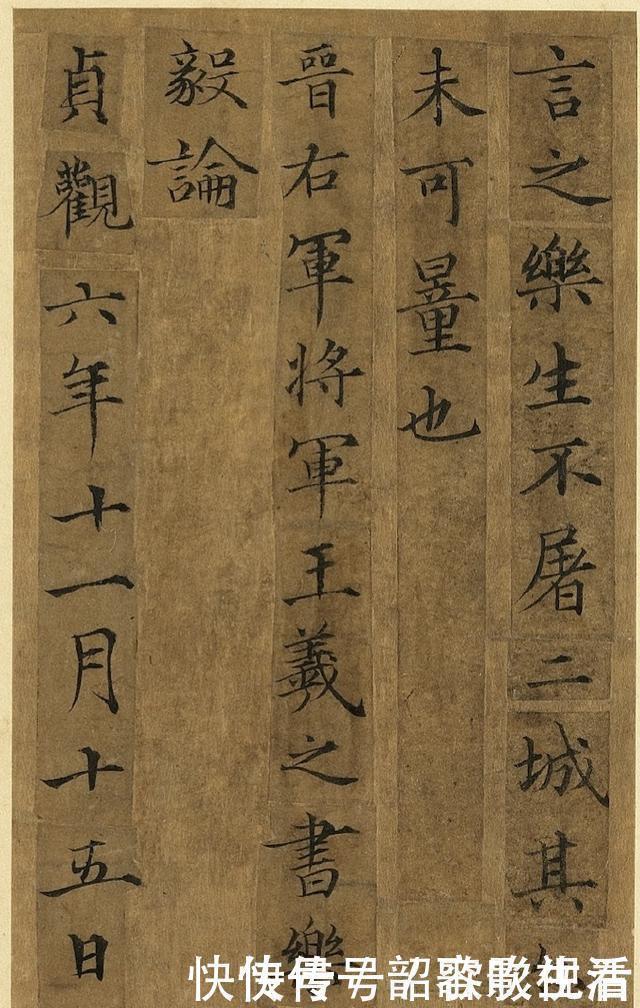 言之樂生不屠二城其
未可量也
晉右軍將軍王羲之書樂
毅論
貞觀六年十一月十五日
快传号